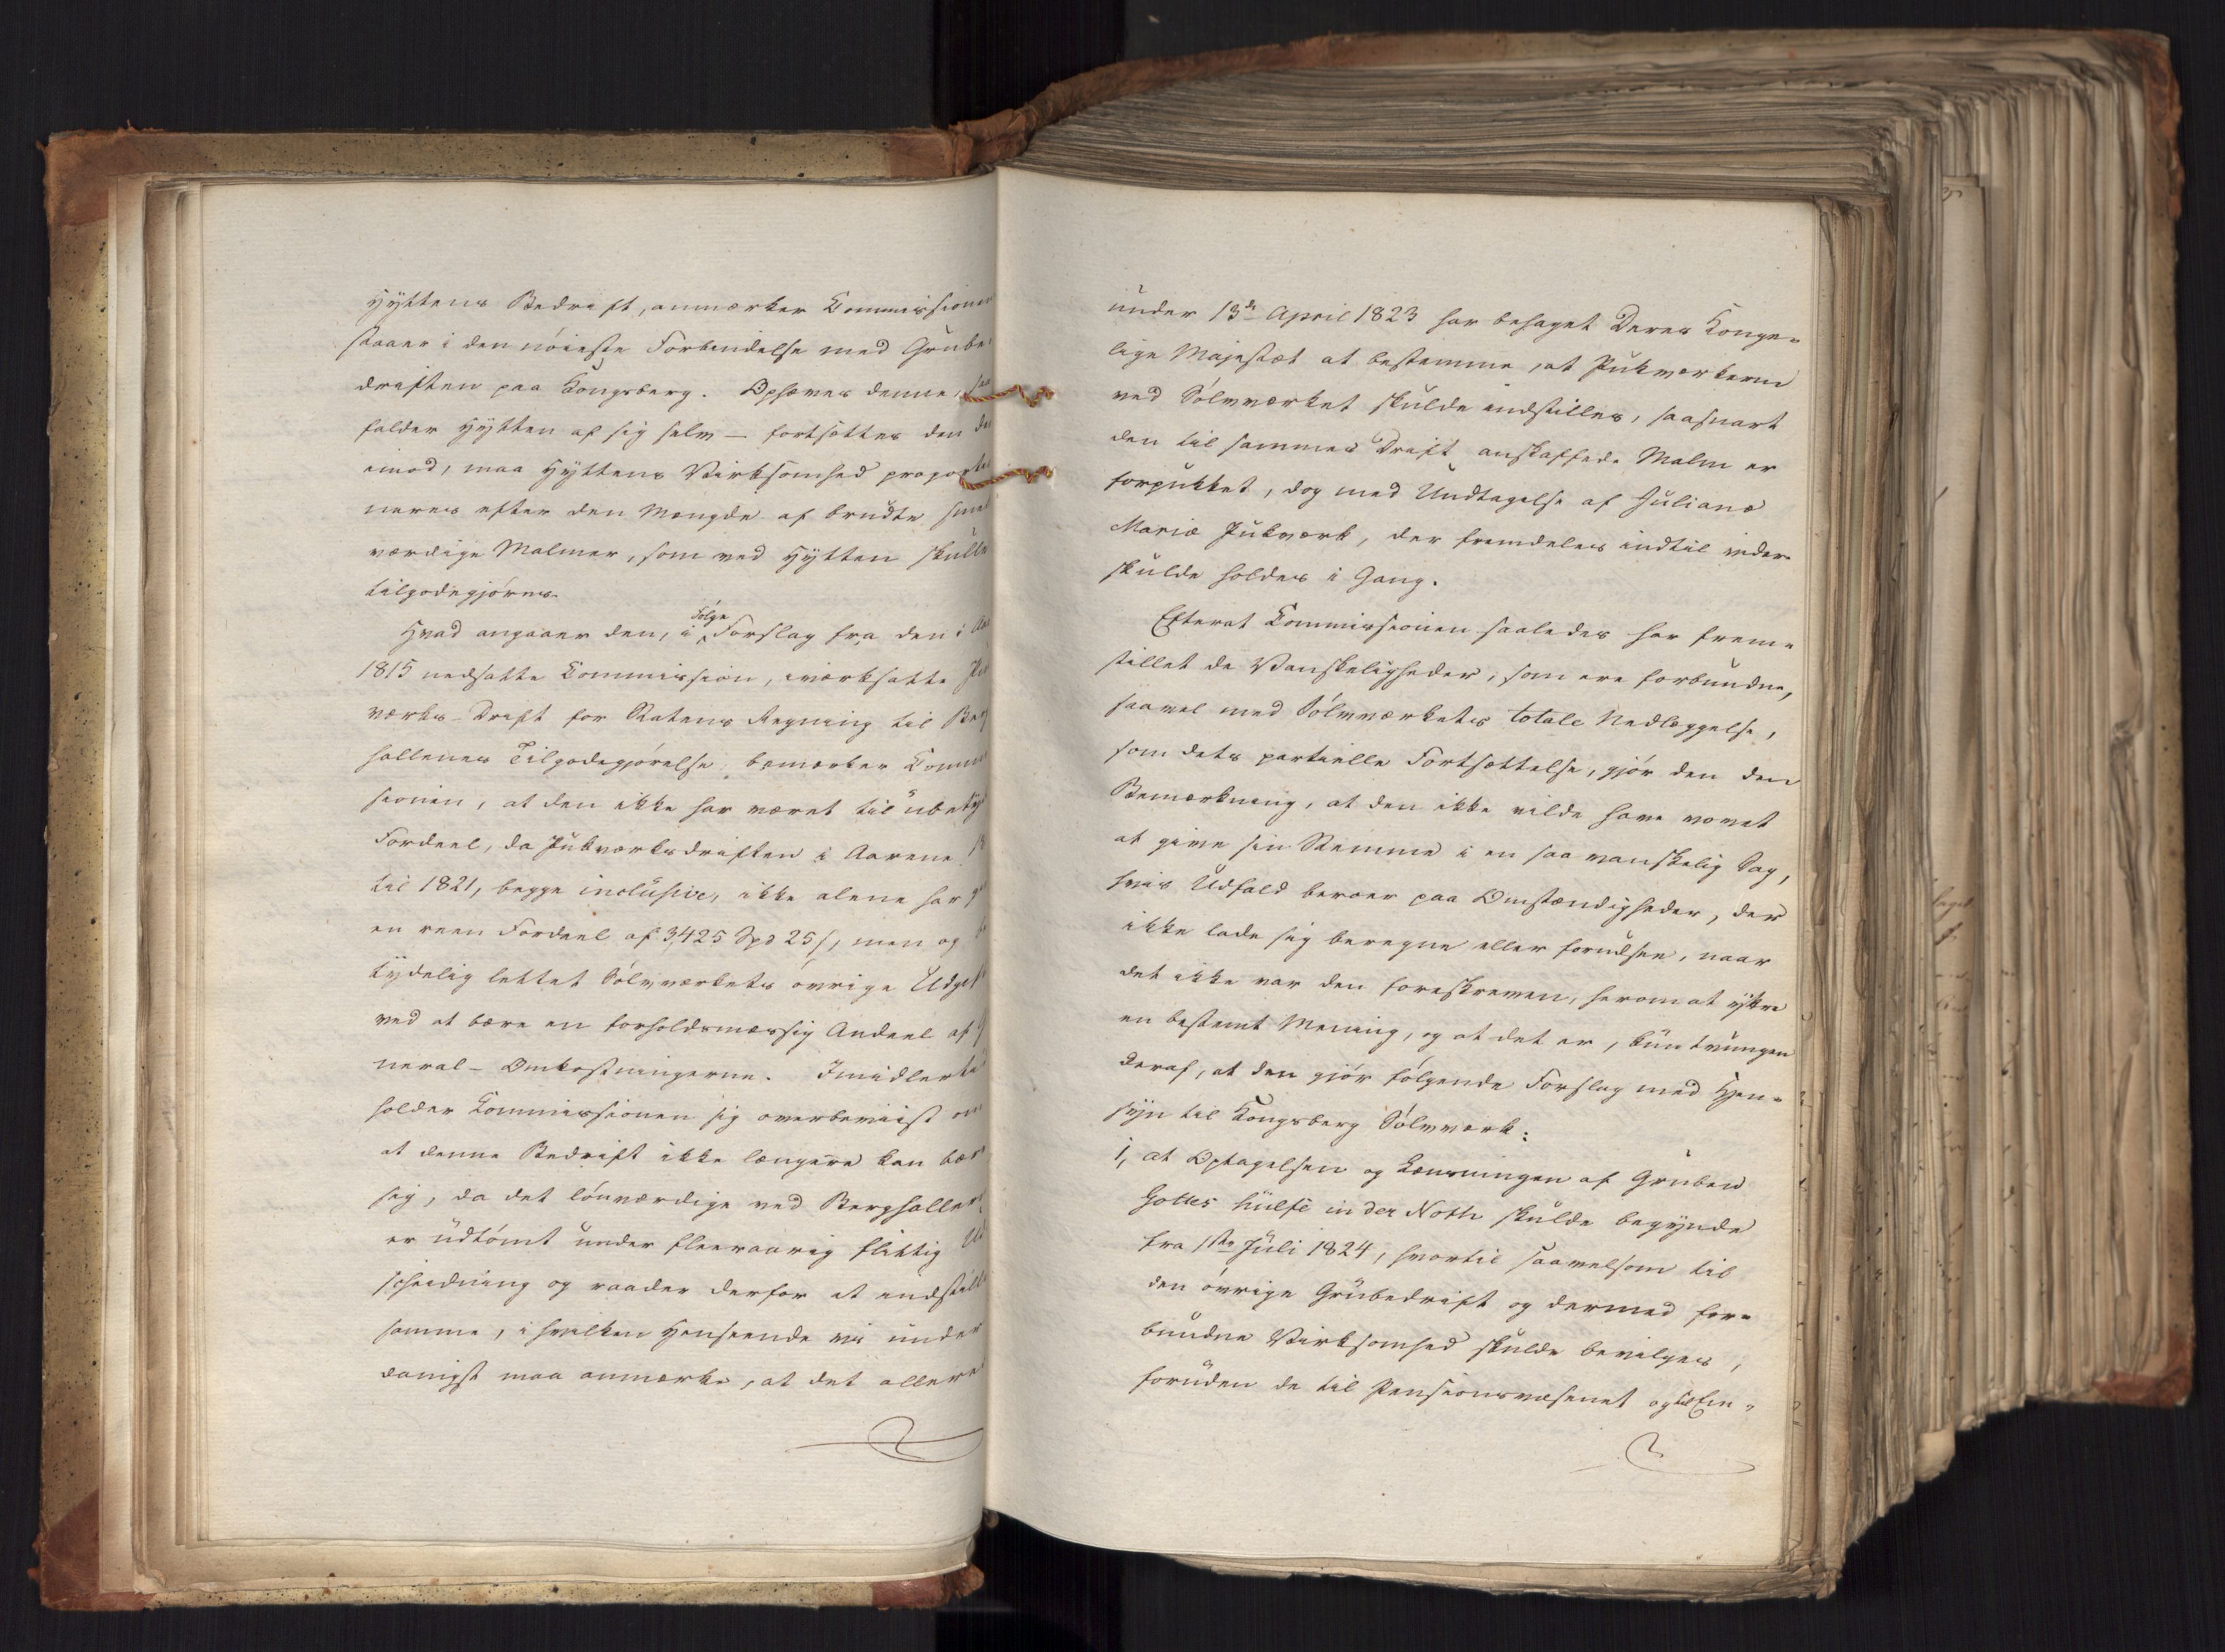 Hyttens Bedrift, anmærker Commissionen
staaer i den nöieste Forbindelse med Grube-
driften paa Kongsberg. Ophæves denne, saa
falder Hytten af sig selv – fortsættes den der
imod, maa Hyttens Virksomhed proportio
neres efter den Mængde af brudte smel
værdige Malmer, som ved Hytten skulle
tilgodegjöres.
Hvad angaaer den, i Fölge Forslag fra den i Aar
1815 nedsatte Commission, iværksatte Puk
værks-Drift for Statens Regning til Berg
hallenes Tilgodegjörelse, bemærker Commis
sionen, at den ikke har været til ubety
Fordeel, da Pukværksdriften i Aarene
til 1821, begge inclusive, ikke alene har
en reen Fordeel af 3,425 Spd 25 s, men og
tydelig lettet Sölvværkets övrige Udgif
ved at bære en forholdsmæssig Andeel af
neral-Omkostningerne. Imidlertid
holder Commissionen sig overbeviist om
at denne Bedrift ikke længere kan bære
sig, da det lönværdige ved Berghallen
er udtömt under fleeraarig flittig Ud
scheidning og raader derfor at indstille
samme, i hvilken Henseende vi under
danigst maa anmærke, at det allere
under 13de April 1823 har behaget Deres Konge-
lige Majestæt at bestemme, at Pukværkerne
ved Sölvværket skulde indstilles, saasnart
den til sammes Drift anskaffede Malm er
forpukket, dog med Undtagelse af Juliane
Mariæ Pukværk, der fremdeles indtil videre
skulde holdes i Gang.
Efterat Commissionen saaledes har frem-
stillet de Vanskeligheder, som ere forbundne,
saavel med Sölvværkets totale Nedlæggelse,
som dets partielle Fortsættelse, gjör den den
Bemærkning, at den ikke vilde have vovet
at give sin Stemme i en saa vanskelig Sag,
hvis Udfald beroer paa Omstændigheder, der
ikke lade sig beregne eller forudsee, naar
det ikke var den foreskreven, herom at yttre
en bestemt Mening, og at det er, kun tvungen
deraf, at den gjör fölgende Forslag med Hen-
syn til Kongsberg Sölvværk:
1, at Optagelsen og Lænsningen af Gruben
Gottes Hülfe in der Noth skulde begynde
fra 1ste Juli 1824, hvortil saavelsom til
den övrige Grubedrift og dermed for-
bundne Virksomhed skulde bevilges,
foruden de til Pensionsvæsenet og til Em-